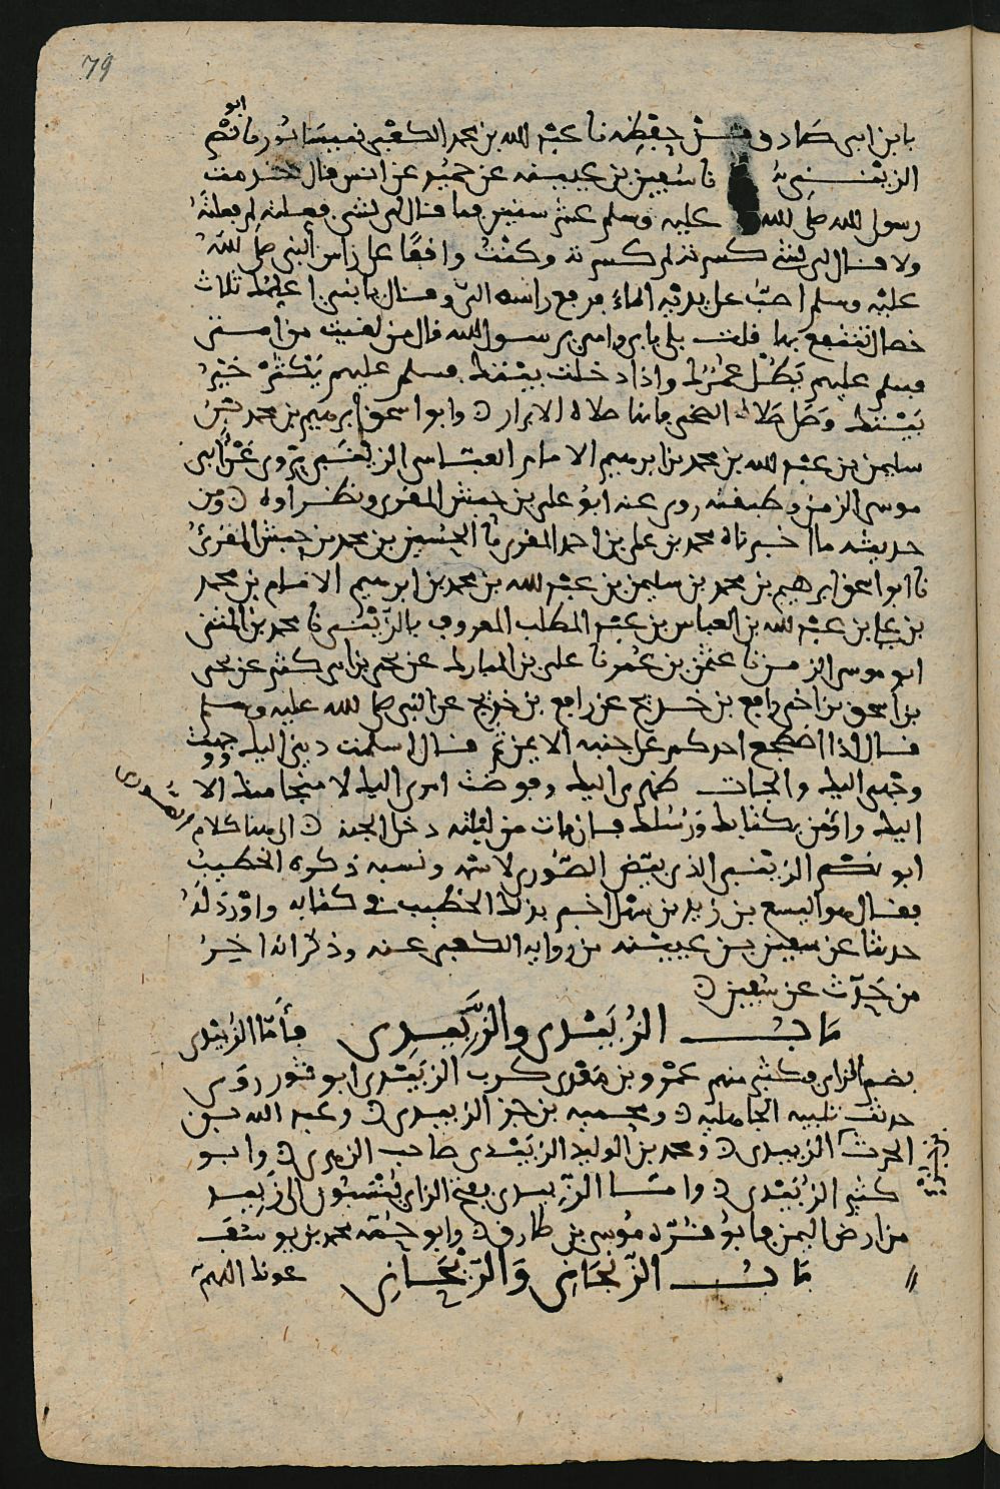 79
ابو
بابن ابي صادق من حفظه نا عبد الله بن محمد الكعبي بنيسابور نا نصر
الزينبي نا سفين بن عيينه عن حميد عن انس قال خدمت
رسول الله صلى الله عليه وسلم عشر سنين فما قال لي لشي فعلته لم فعلته
ولا قال لي لشي كسرته لم كسرته وكنت واقفا على راس النبي صلى الله
عليه وسلم اصب على يديه الماء فرفع راسه الي وقال يا بني اعلمك ثلاث
خصال تنتفع بها قلت بلى بابي وامي يرسول الله قال من لقيت من امتي
فسلم عليهم يطل عمرك واذا دخلت بيتك فسلم عليهم يكثر خير
بيتك وصل صلاه الضحى فانها صلاه الابرار وابو اسحق ابرهيم بن محمد بن
سليمن بن عبد الله بن محمد بن ابرهيم الامام العباسي الزينبي يروي عن ابي
موسى الزمن وطبقته روى عنه ابو علي بن حبش المقري ونظراوه ومن
حديثه ما اخبرناه محمد بن علي بن احمد المقري نا الحسين بن محمد بن حبش المقرئ
نا ابو اسحق ابرهيم بن محمد بن سليمن بن عبد الله بن محمد بن ابرهيم الامام بن محمد
بن علي بن عبد الله بن العباس بن عبد المطلب المعروف بالزينبي نا محمد بن المثنى
ابو موسى الزمن نا عثمن بن عمر نا علي بن المبارك عن يحيى بن ابي كثير عن يحيى
بن اسحق بن اخي رافع بن خديج عن رافع بن خديج عن النبي صلى الله عليه وسلم
قال اذا اضطجع احدكم على جنبه الايمن ثم قال اسلمت ديني اليك ووجهت
وجهي اليك والجات ظهري اليك وفوضت امري اليك لا منجا منك الا
اليك واؤمن بكتابك ورسلك فان مات من ليلته دخل الجنة الى هنا كلام
الصوري
ابو نصر الزينبي الذي بيض الصوري لاسمه ونسبه ذكره الخطيب
فقال هو اليسع بن زيد بن سهل اخبر بذلك الخطيب في كتابه واورد له
حديثا عن سفين بن عيينه من روايه الكعبي عنه وذكر انه اخر
من حدث عن سفين
باب الزبيدي والزبيدي فأما الزبيدي
بضم الزاي فكثير منهم عمرو بن معدي كرب الزبيدي ابو ثور روى
حديث تلبيه الجاهليه ومحميه بن جز الزبيدي وعبد الله بن
الحرث الزبيدي ومحمد بن الوليد الزبيدي صاحب الزهري وابو
كثير الزبيدي واما الزبيدي بفتح الزاي فينسبون الى زبيد
من ارض اليمن فابو قره موسى بن طارق وابو حمه محمد بن يوسف
باب الزنجاني والريحاني عونك اللهم